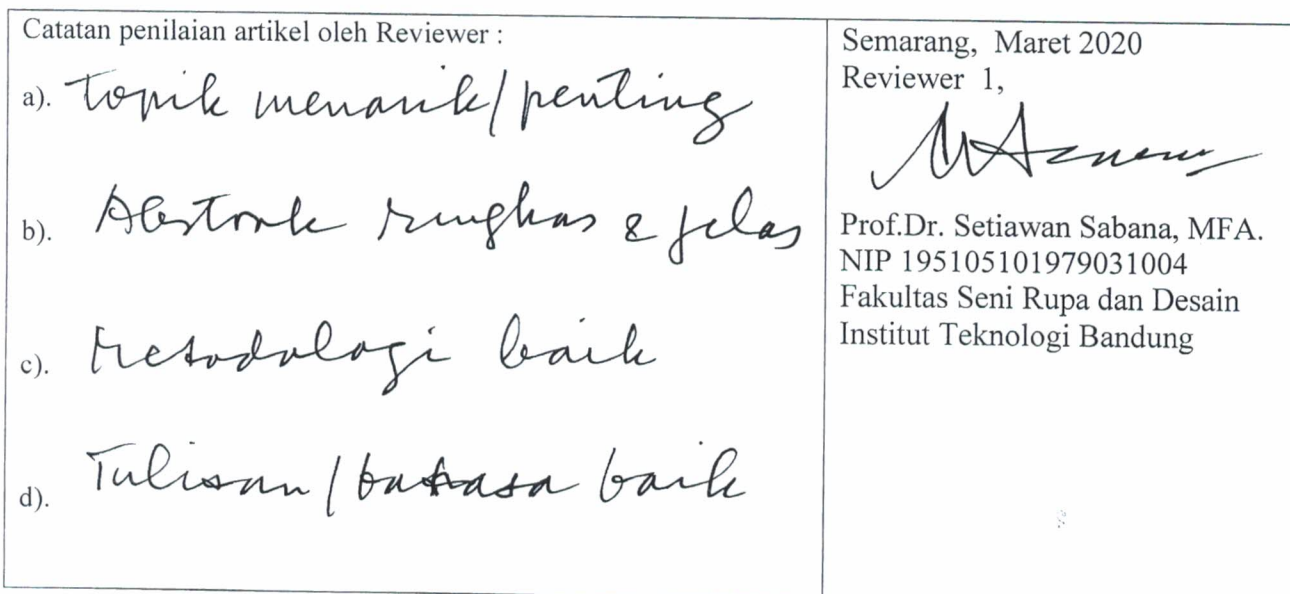 Catatan penilaian artikel oleh Reviewer :
a). Topik menarik/penting
b). Abstrak ringkas & jelas
c). Metodologi baik
d). Tulisan / bahasa baik
Semarang, Maret 2020
Reviewer 1,
Prof.Dr. Setiawan Sabana, MFA.
NIP 195105101979031004
Fakultas Seni Rupa dan Desain
Institut Teknologi Bandung